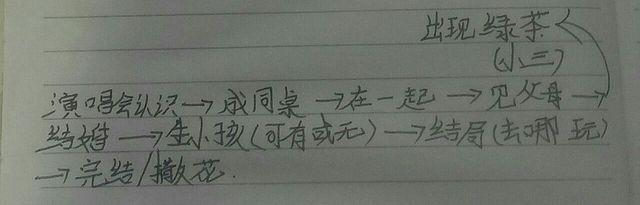 出现绿茶
(小三)
演唱会认识→成同桌→在一起→见父母→
结婚→生小孩(可有或无)→结局(去哪玩)
→完结/撒花.